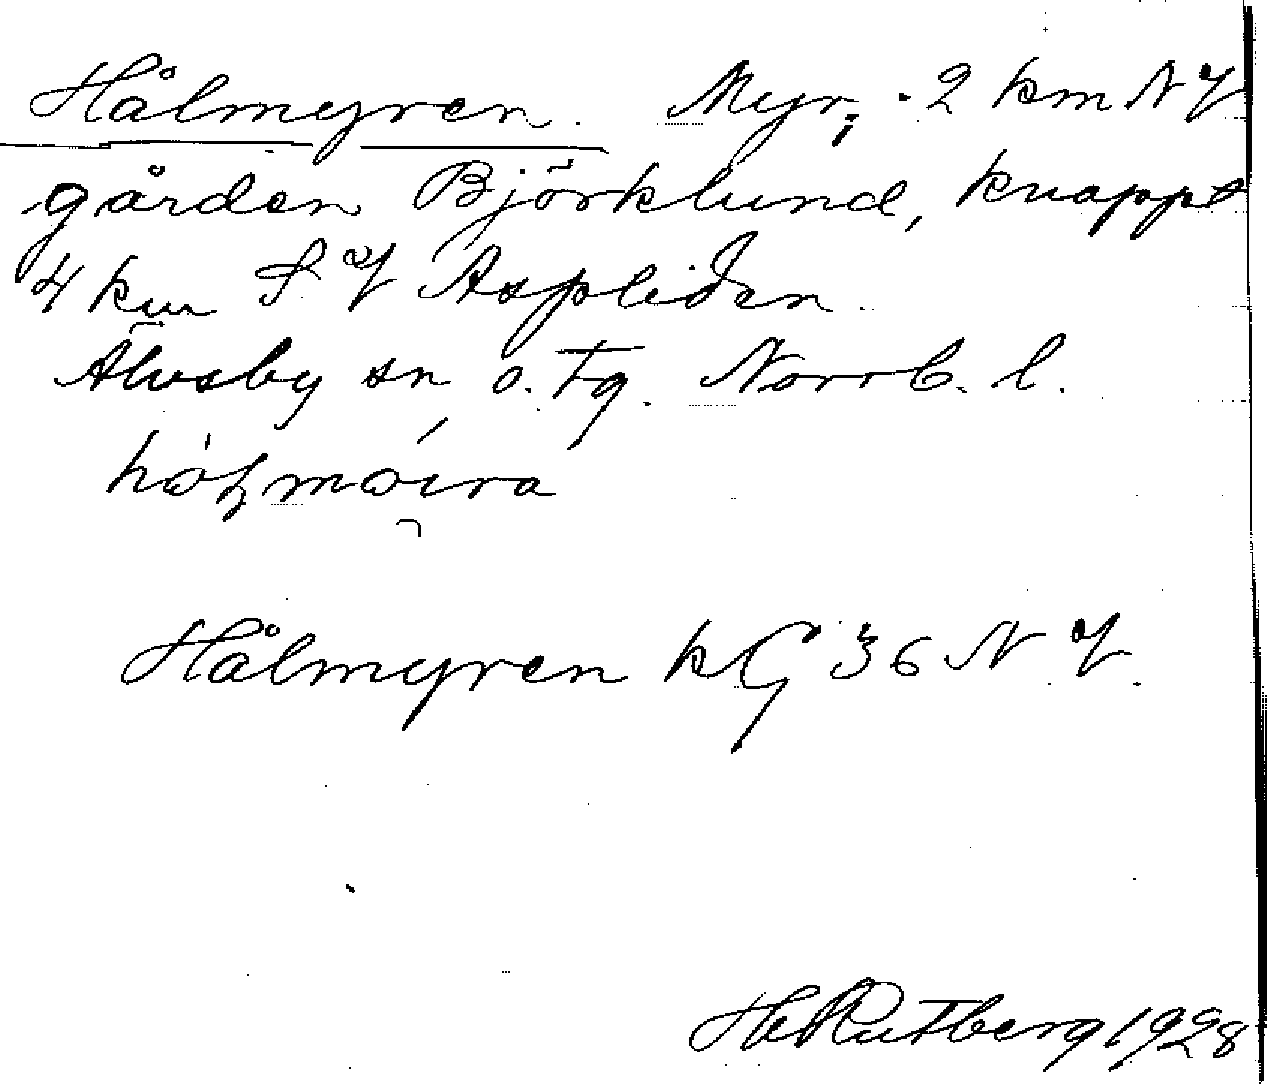 Hålmyren. Myr, 2 km N of
gården Björklund, knappt
4 km S of Aspliden.
Älvsby sn o. tg. Norrb. l.
Hålmyren kG 36 N of.
H Rutberg 1928